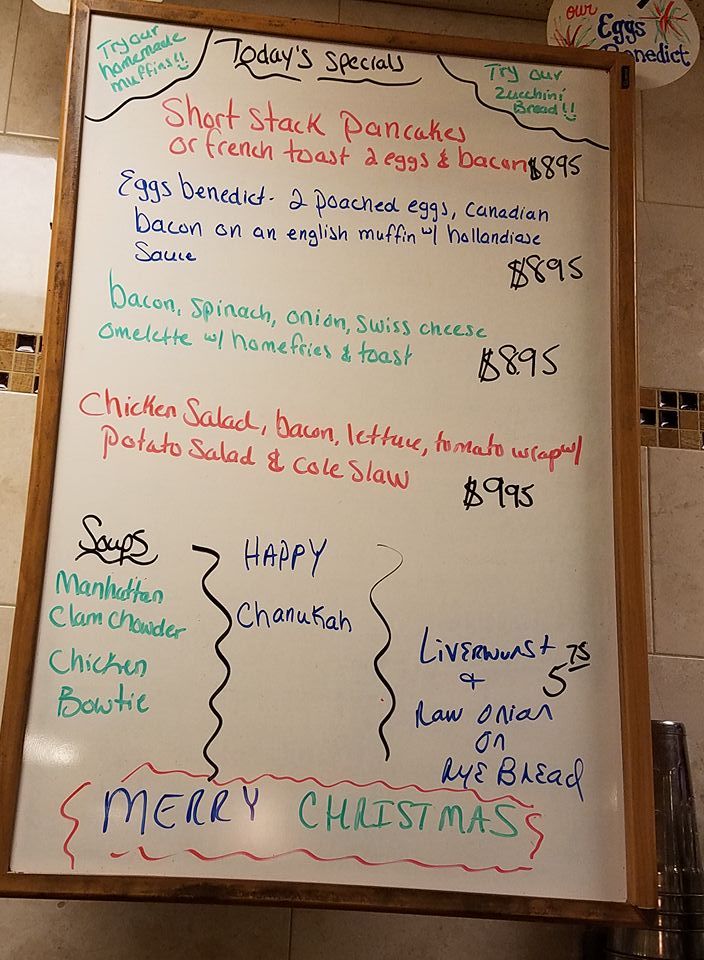 our
Eggs
Benedict
Try our
homemade
muffins!!
Today's Specials
Try our
Zucchini
Bread!!
Short Stack Pancakes
or french toast 2 eggs & bacon $895
Eggs benedict - 2 poached eggs, canadian
bacon on an english muffin w/ hollandiase
Sauce
$895
bacon, spinach, onion, swiss cheese
omelette w/ homefries & toast
$895
Chicken Salad, bacon, lettuce, tomato wrap w/
potato salad & cole slaw
$995
Soups
Manhattan
Clam Chowder
Chicken
Bowtie
HAPPY
Chanukah
Liverwurst 5 75
&
Raw onion
on
Rye Bread
MERRY CHRISTMAS